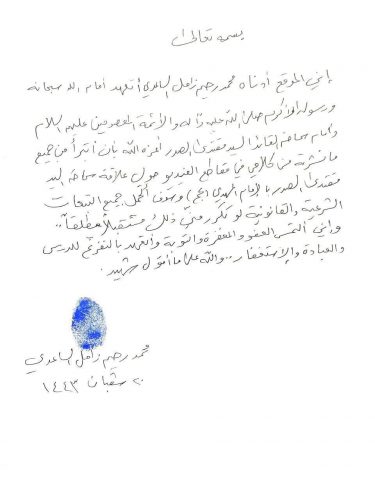 بسمه تعالى
إني الموقع أدناه محمد رحيم زامل الساعدي أتعهد أمام الله سبحانه
ورسوله الأكرم صلى الله عليه وآله والأئمة المعصومين عليهم السلام
وأمام سماحة القائد السيد مقتدى الصدر أعزه الله بأن أتبرأ من جميع
ما نشرته من كلامي في مقاطع الفيديو حول علاقة سماحة السيد
مقتدى الصدر بالإمام المهدي (عج) وسوف أتحمل جميع التبعات
الشرعية والقانونية لو تكرر مني ذلك مستقبلاً مطلقاً..
وإني ألتمس العفو والمغفرة والتوبة وأتعهد بالتفرغ للدرس
والعبادة والإستغفار.. والله على ما أقول شهيد.
محمد رحيم زامل الساعدي
٢٠ شعبان ١٤٤٣